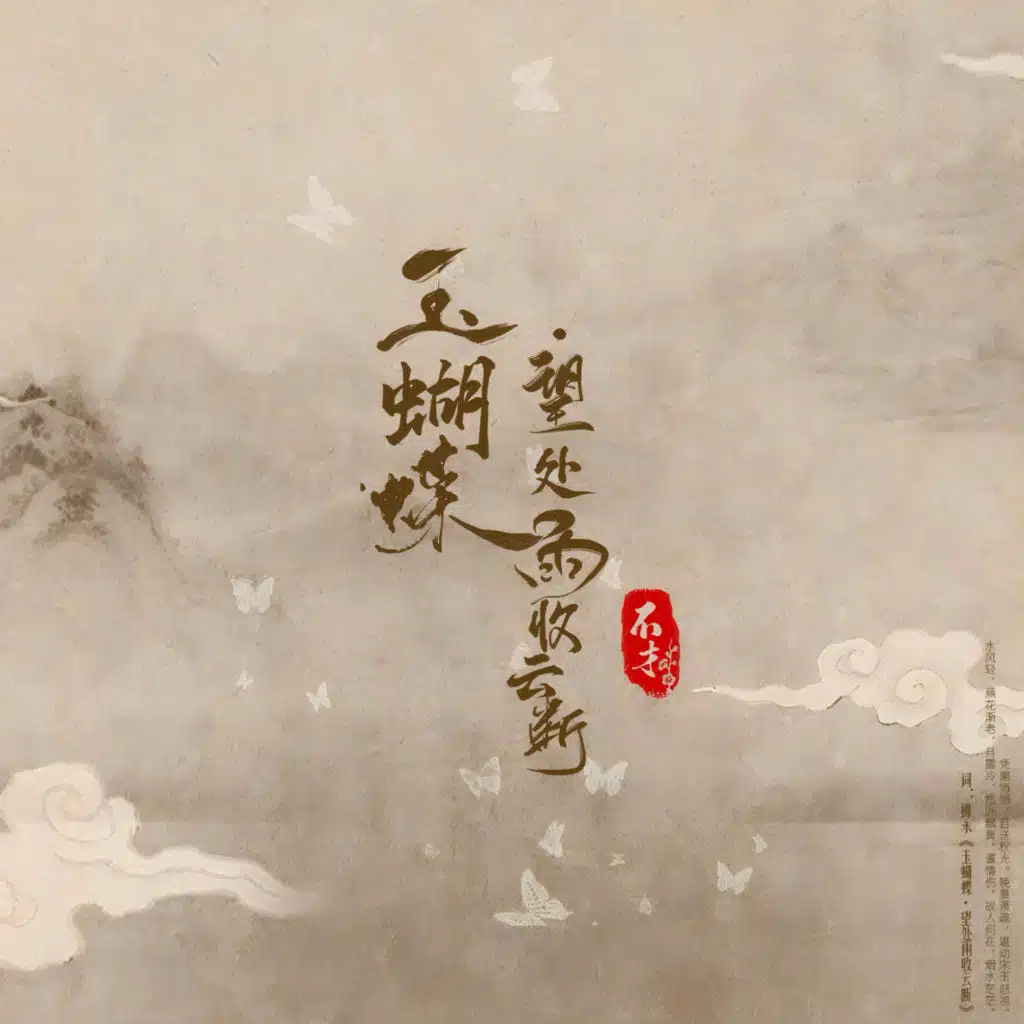 玉蝴蝶
·望处雨收云断
不才
凭阑悄悄,目送秋光。晚景萧疏,堪动宋玉悲凉。
水风轻,蘋花渐老,月露冷,梧叶飘黄,遣情伤,故人何在,烟水茫茫。
词:柳永《玉蝴蝶·望处雨收云断》